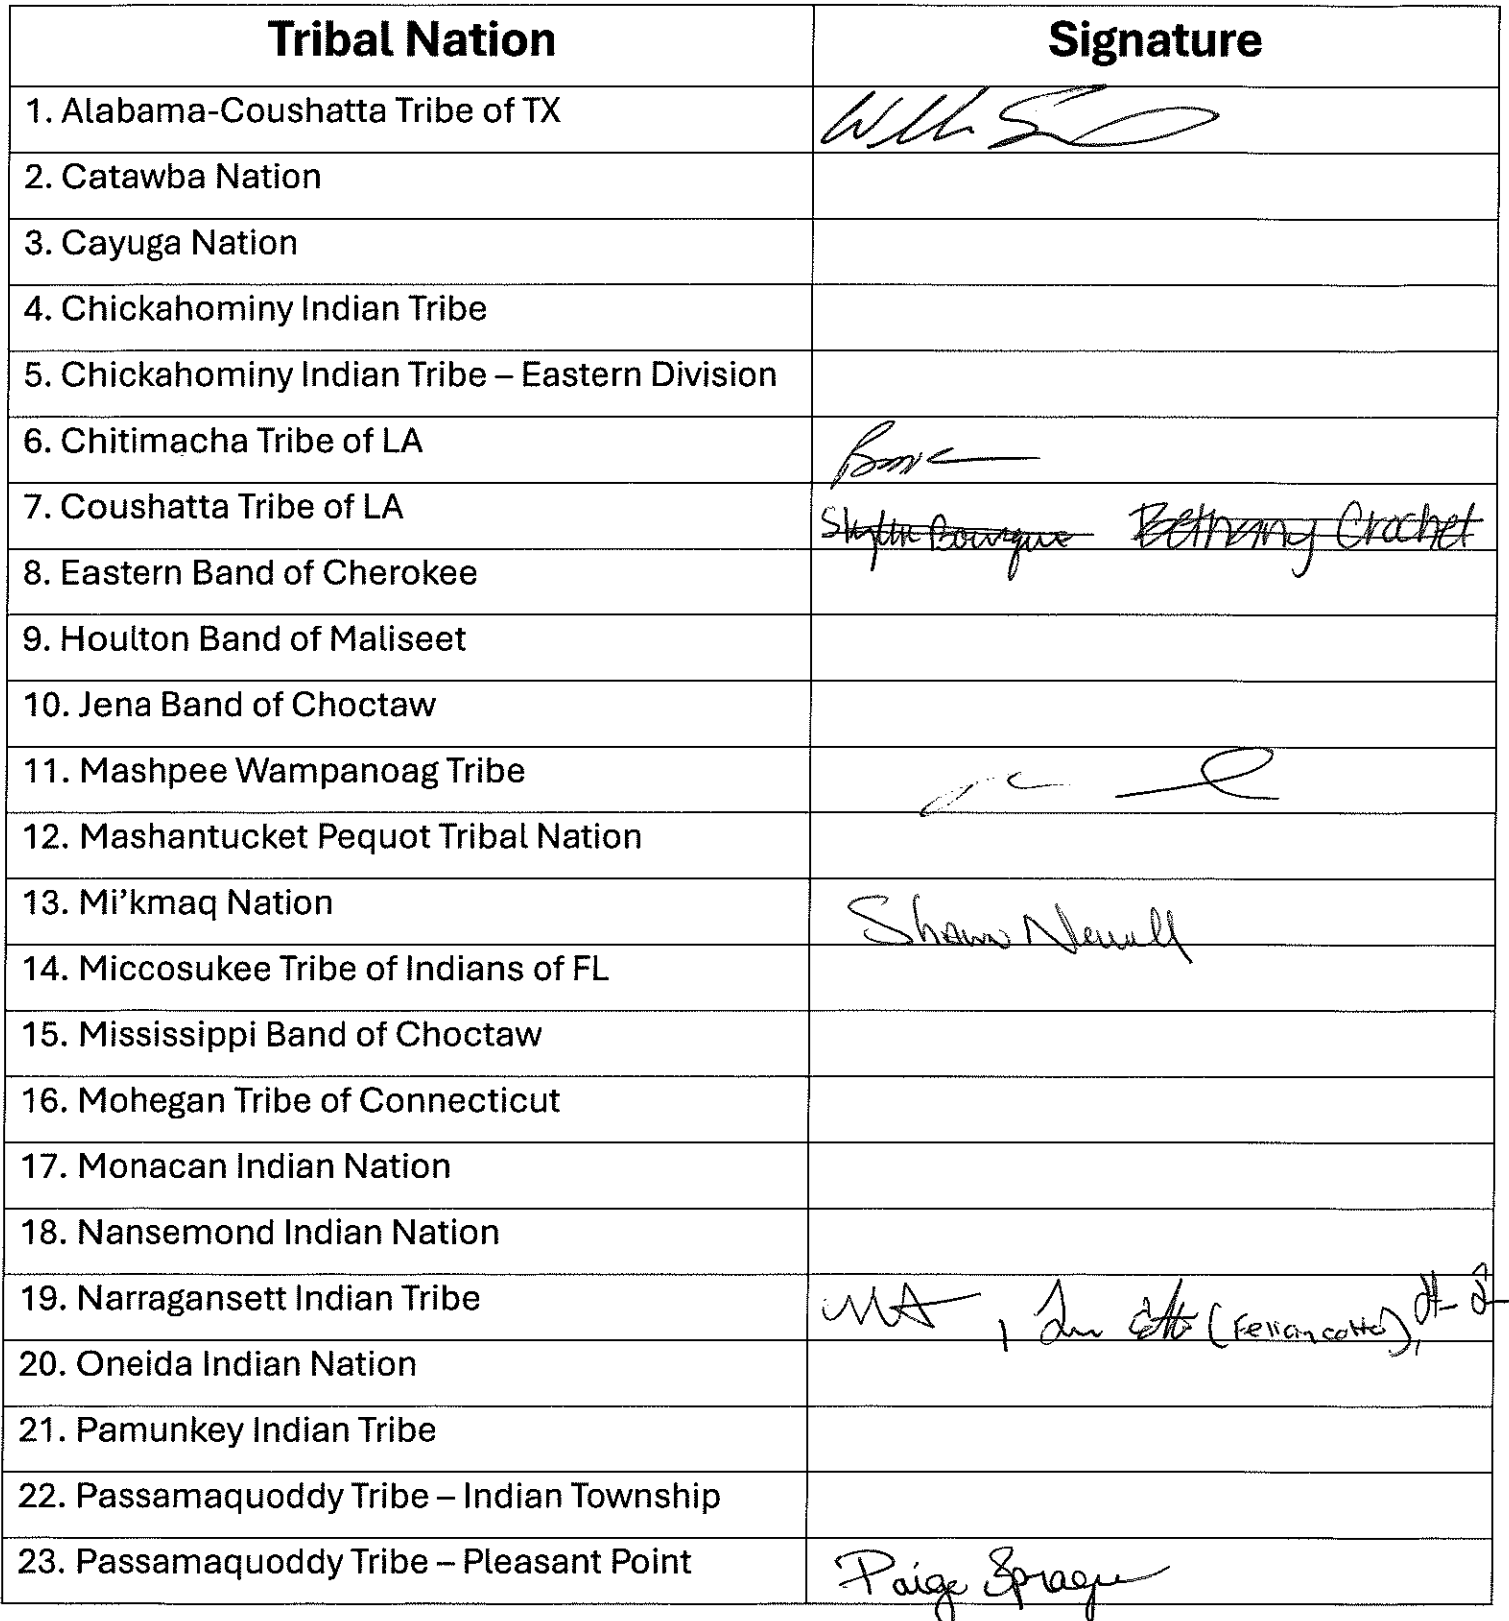 Tribal Nation Signature
1. Alabama-Coushatta Tribe of TX
2. Catawba Nation
3. Cayuga Nation
4. Chickahominy Indian Tribe
5. Chickahominy Indian Tribe – Eastern Division
6. Chitimacha Tribe of LA
7. Coushatta Tribe of LA Bethany Crochet
8. Eastern Band of Cherokee
9. Houlton Band of Maliseet
10. Jena Band of Choctaw
11. Mashpee Wampanoag Tribe
12. Mashantucket Pequot Tribal Nation
13. Mi’kmaq Nation Shawn Newell
14. Miccosukee Tribe of Indians of FL
15. Mississippi Band of Choctaw
16. Mohegan Tribe of Connecticut
17. Monacan Indian Nation
18. Nansemond Indian Nation
19. Narragansett Indian Tribe
20. Oneida Indian Nation
21. Pamunkey Indian Tribe
22. Passamaquoddy Tribe – Indian Township
23. Passamaquoddy Tribe – Pleasant Point Paige Sprague